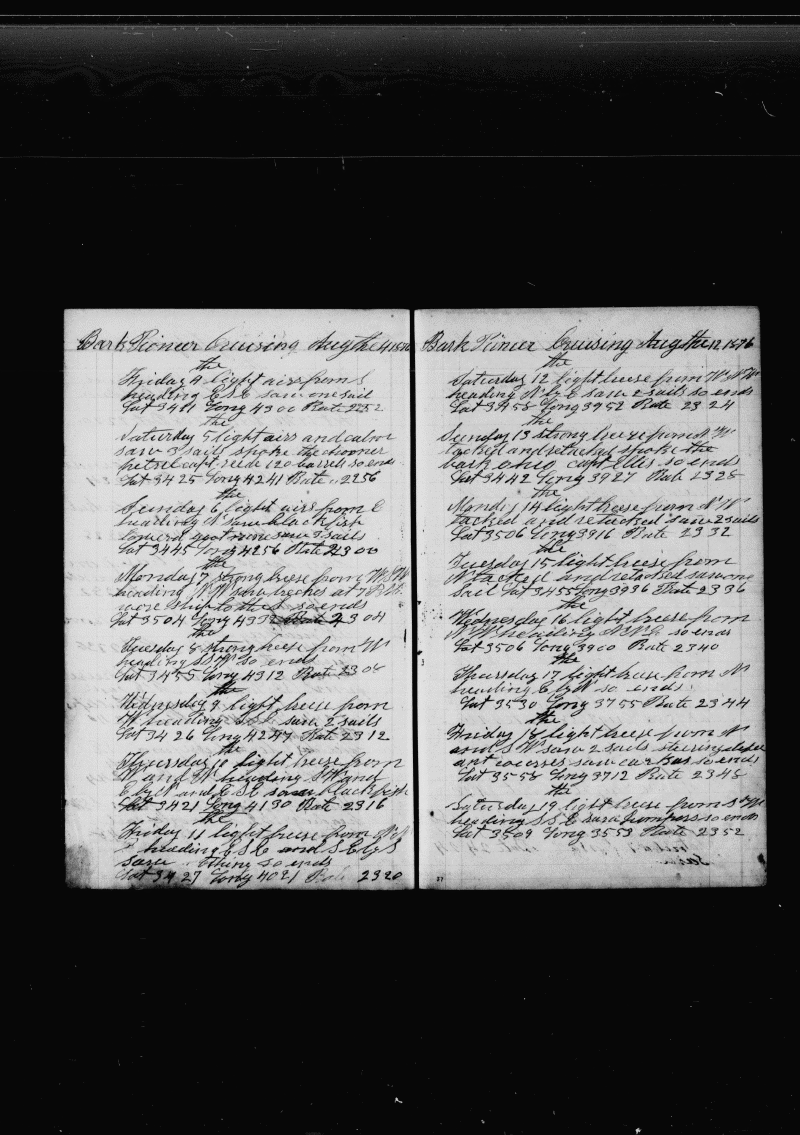 Bark Pioneer Cruising Aug the 4 1876
the
Friday 4 light airs from S
heading E S E saw one sail
Lat 34 11 Long 43 00 Rate 2252
the
Saturday 5 light airs and calm
saw 3 sails spoke the chooner
petrel capt reede 120 barrels so ends
Lat 34 25 Long 42 41 Rate 2256
the
Sunday 6 light airs from E
heading N saw blackfish
lowerd got none saw 3 sails
Lat 3445 Long 4256 Rate 2300
the
Monday 7 strong breese from W S W
heading N W saw breches at 7
wore ship to the S so ends
Lat 3504 Long 4332 Rate 2304
the
Tuesday 8 strong breese from W
heading S S W so ends
Lat 3455 Long 4312 Rate 2308
the
Wednesday 9 light breese from
W heading S S E saw 2 sails
Lat 34 26 Long 42 47 Rate 2312
the
Thursday 10 light breese from
W and N heading S W and
E by N and E S E saw blackfish
Lat 3421 Long 4130 Rate 2316
the
Friday 11 light breese from N N
heading E S E and S E by S
saw othing so ends
Lat 34 27 Long 4021 Rate 2320
Bark Pioneer Cruising Aug the 12 1876
the
Saturday 12 light breese from W N W
heading N by E saw 2 sails so ends
Lat 3458 Long 3952 Rate 23 24
the
Sunday 13 strong breese from N W
tacked and retacked spoke the
bark ohio capt Ellis so ends
Lat 3442 Long 3927 Rate 2328
the
Monday 14 light breese from N W
tacked and retacked saw 2 sails
Lat 3506 Long 3916 Rate 2332
the
Tuesday 15 light breese from
N tacked and retacked saw one
sail Lat 3455 Long 3936 Rate 2336
the
Wednesday 16 light breese from
N W heading N N E so ends
Lat 3506 Long 3900 Rate 2340
the
Thursday 17 light breese from N
heading E by N so ends
Lat 3530 Long 3755 Rate 2344
the
Friday 18 light breese from N
and S W saw 2 sails steering
ant cocrses saw so ends
Lat 3558 Long 3712 Rate 2348
the
Saturday 19 light breese from
heading S S E saw jumpers so ends
Lat 3509 Long 3553 Rate 2352
37